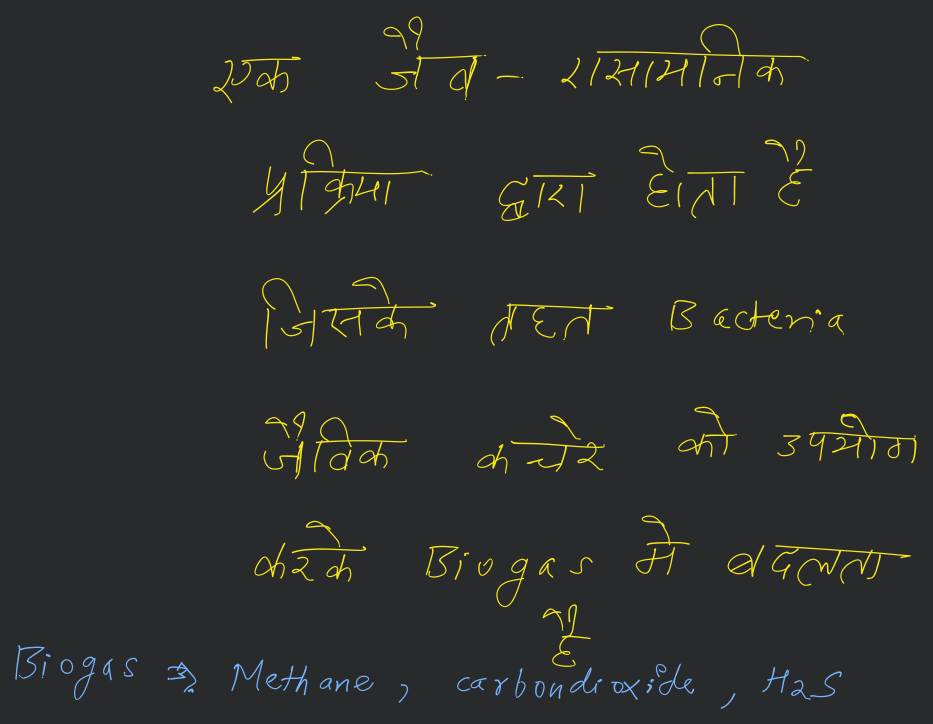 एक जैव - रासायनिक
प्रक्रिया द्वारा होता है
जिसके तहत Bacteria
जैविक कचेर को उपयोग
करके Biogas मे बदलता
है
Biogas ⇒ Methane, carbondioxide, H2S